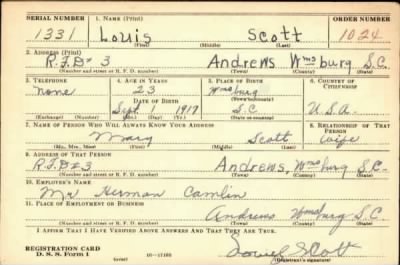 SERIAL NUMBER 1. NAME (Print) ORDER NUMBER
1331 Louis Scott 1024
(First) (Middle) (Last)
2. ADDRESS (Print)
R.F.D# 3 Andrews Wmsburg S.C.
(Number and street or R. F. D. number) (Town) (County) (State)
3. TELEPHONE 4. AGE IN YEARS 5. PLACE OF BIRTH 6. COUNTRY OF CITIZENSHIP
None 23 Wmsburg
DATE OF BIRTH (Town or county)
Sept 1 1917 S.C U.S.A.
(Exchange) (Number) (Mo.) (Day) (Yr.) (State or country)
7. NAME OF PERSON WHO WILL ALWAYS KNOW YOUR ADDRESS 8. RELATIONSHIP OF THAT PERSON
Mary Scott wife
(Mr., Mrs., Miss) (First) (Middle) (Last)
9. ADDRESS OF THAT PERSON
R.F.D#3 Andrews, Wmsburg S.C.
(Number and street or R. F. D. number) (Town) (County) (State)
10. EMPLOYER'S NAME
Mr Herman Camlin
11. PLACE OF EMPLOYMENT OR BUSINESS
Andrews Wmsburg S.C.
(Number and street or R. F. D. number) (Town) (County) (State)
I AFFIRM THAT I HAVE VERIFIED ABOVE ANSWERS AND THAT THEY ARE TRUE.
REGISTRATION CARD
D. S. S. Form 1 (over) 16—17105 Scott
(Registrant's signature)